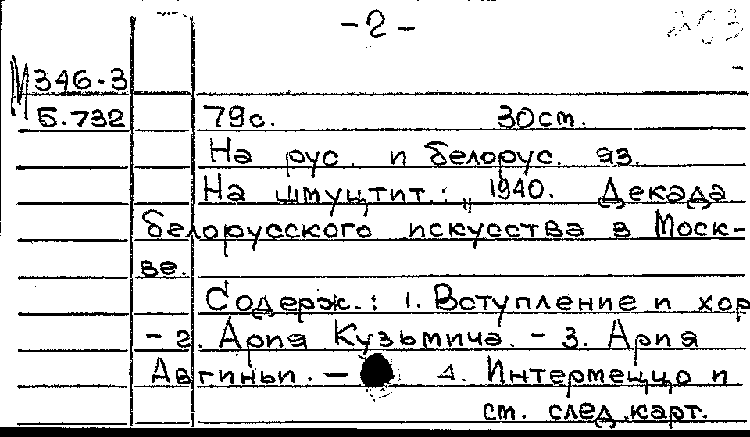 -2-
203
М346-3
Б.732 79с. 30см.
На рус. и белорус. яз.
На шмуцтит.: „1940. Декада
белорусского искусства в Моск-
ве.
Содерж.: 1. Вступление и хор
- 2. Ария Кузьмича. - 3. Ария
Авгиньи. — 4. Интермеццо и
см. след. карт.